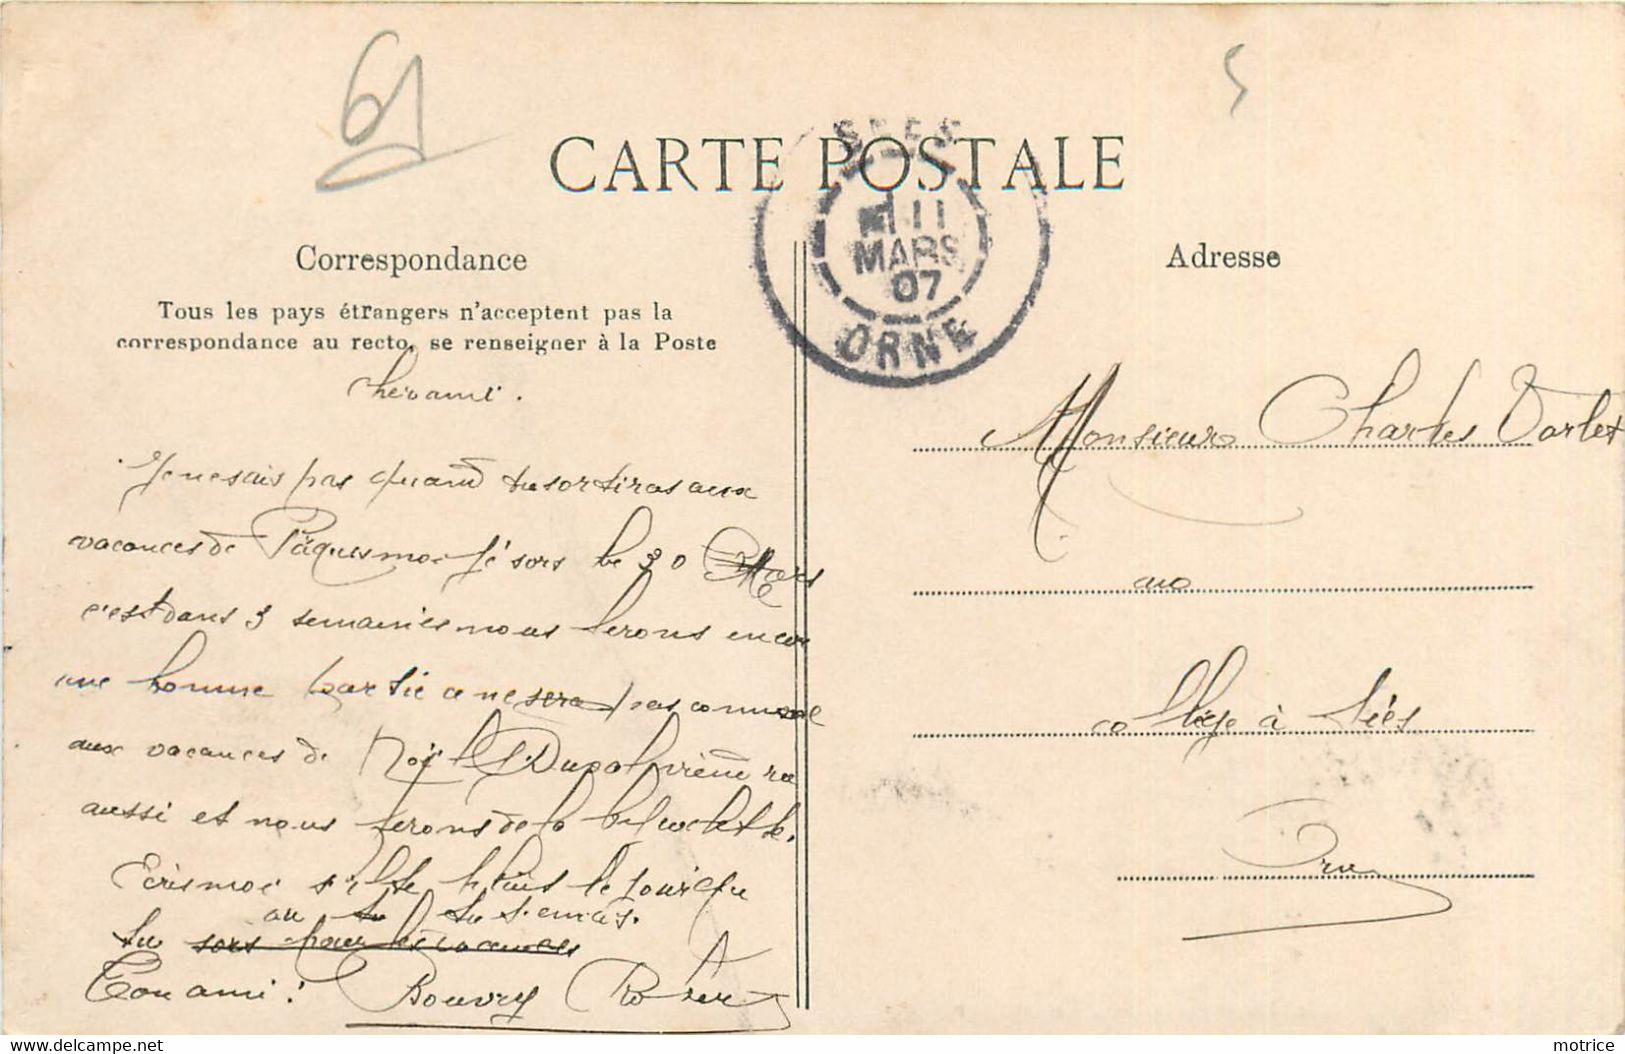 61
5
CARTE POSTALE
SEES
11
MARS
07
ORNE
Correspondance
Tous les pays étrangers n'acceptent pas la
correspondance au recto, se renseigner à la Poste
Cher ami.
Je ne sais pas quand tu sortiras aux
vacances de Pâques moi je sors le 30 Mars
c'est dans 3 semaines nous ferons encor
une bonne partie ce ne sera pas comme
aux vacances de Noël viendra
aussi et nous ferons de la bicyclette.
Ecris moi s'il te plait le jour que
au tu tu t'en iras.
tu sors pour les vacances
Ton ami : Bouvry Robert
Adresse
Monsieur Charles Varlet
au
collège à Sées
Orne
motrice